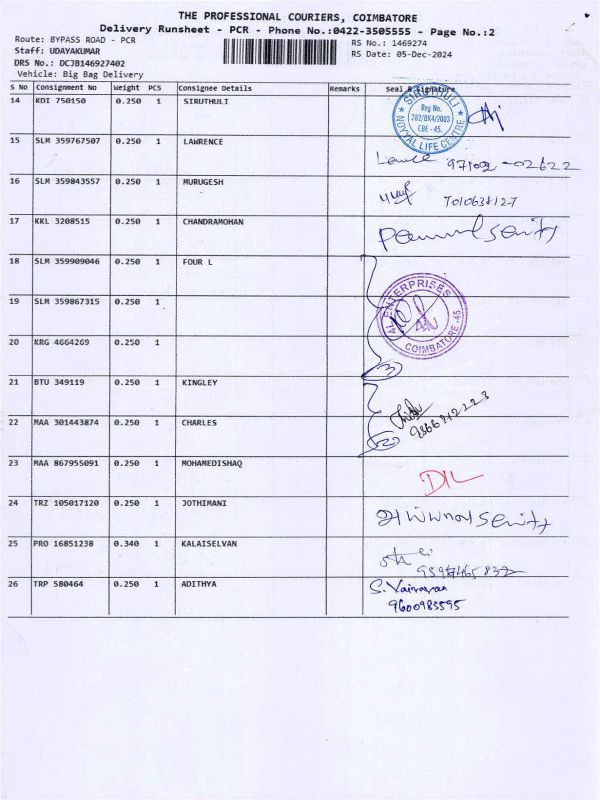 THE PROFESSIONAL COURIERS, COIMBATORE
Delivery Runsheet - PCR - Phone No.:0422-3505555 - Page No.:2
Route: BYPASS ROAD - PCR RS No.: 1469274
Staff: UDAYAKUMAR RS Date: 05-Dec-2024
DRS No.: DCJB146927402
Vehicle: Big Bag Delivery
S No Consignment No Weight PCS Consignee Details Remarks Seal & Signature
14 KDI 750150 0.250 1 SIRUTHULI
SIRUTHULI
Reg No.
282/BK4/2003
CBE - 45.
NOYYAL LIFE CENTRE
15 SLM 359767507 0.250 1 LAWRENCE
16 SLM 359843557 0.250 1 MURUGESH
17 KKL 3208515 0.250 1 CHANDRAMOHAN
18 SLM 359909046 0.250 1 FOUR L
19 SLM 359867315 0.250 1
4L ENTERPRISES
COIMBATORE-45
20 KRG 4664269 0.250 1
3
21 BTU 349119 0.250 1 KINGLEY
22 MAA 301443874 0.250 1 CHARLES
2
23 MAA 867955091 0.250 1 MOHAMEDISHAQ
DIL
24 TRZ 105017120 0.250 1 JOTHIMANI
25 PRO 16851238 0.340 1 KALAISELVAN
26 TRP 580464 0.250 1 ADITHYA
S. Vairavan
9600983595